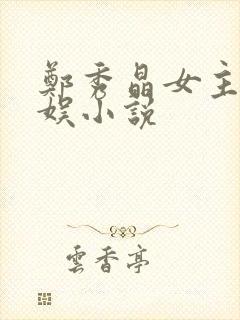 鄭秀晶女主
娛小說
雲香亭